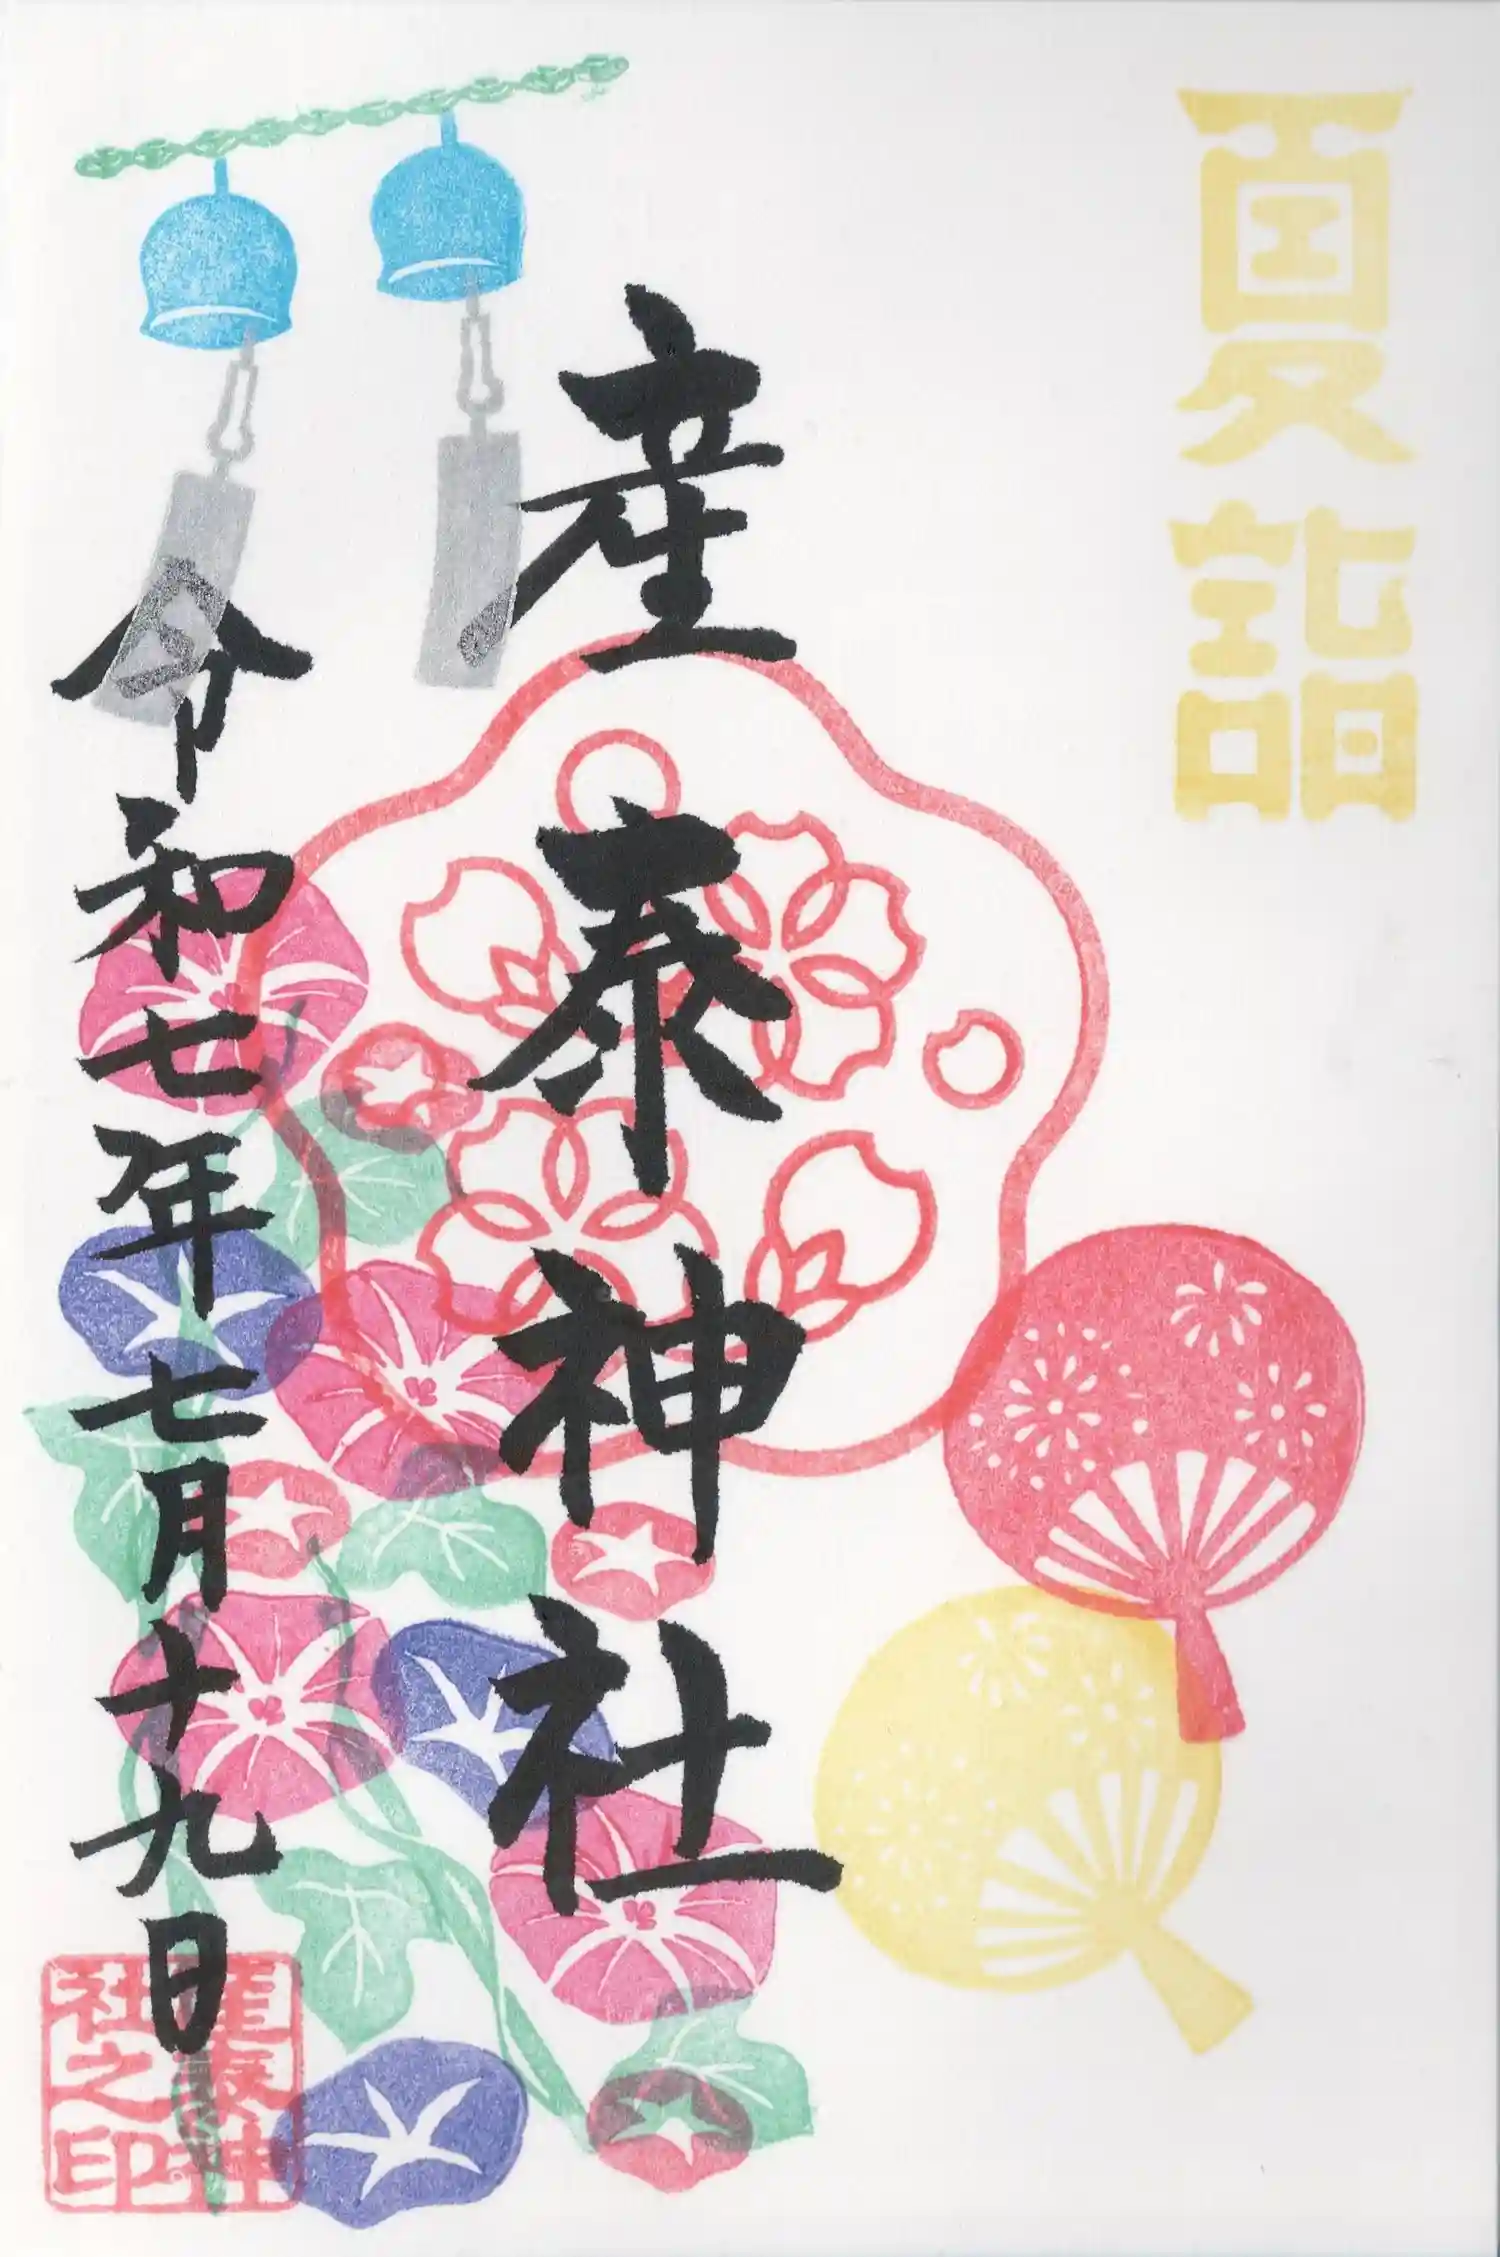 夏詣
産泰神社
令和七年七月十九日
産泰神
社之印